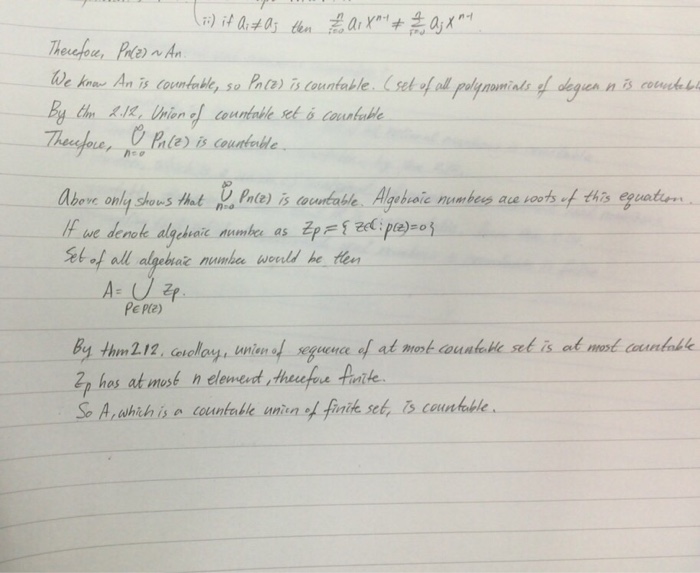 (ii) if ai≠aj then Σ(i=0 to n) ai X^n-i ≠ Σ(i=0 to n) aj X^n-i
Therefore, Pn(z) ~ An.
We know An is countable, so Pn(z) is countable. (set of all polynomials of degree n is countabl
By thm 2.12, Union of countable set is countable
Therefore, ∞∪n=0 Pn(z) is countable.
Above only shows that ∞∪n=0 Pn(z) is countable. Algebraic numbers are roots of this equation.
If we denote algebraic number as Zp = { z∈ℂ : p(z)=0}
Set of all algebraic number would be then
A = ∪ Zp.
P∈P(z)
By thm 2.12, corollay, union of sequence of at most countable set is at most countable
Zp has at most n element, therefore finite.
So A, which is a countable union of finite set, is countable.